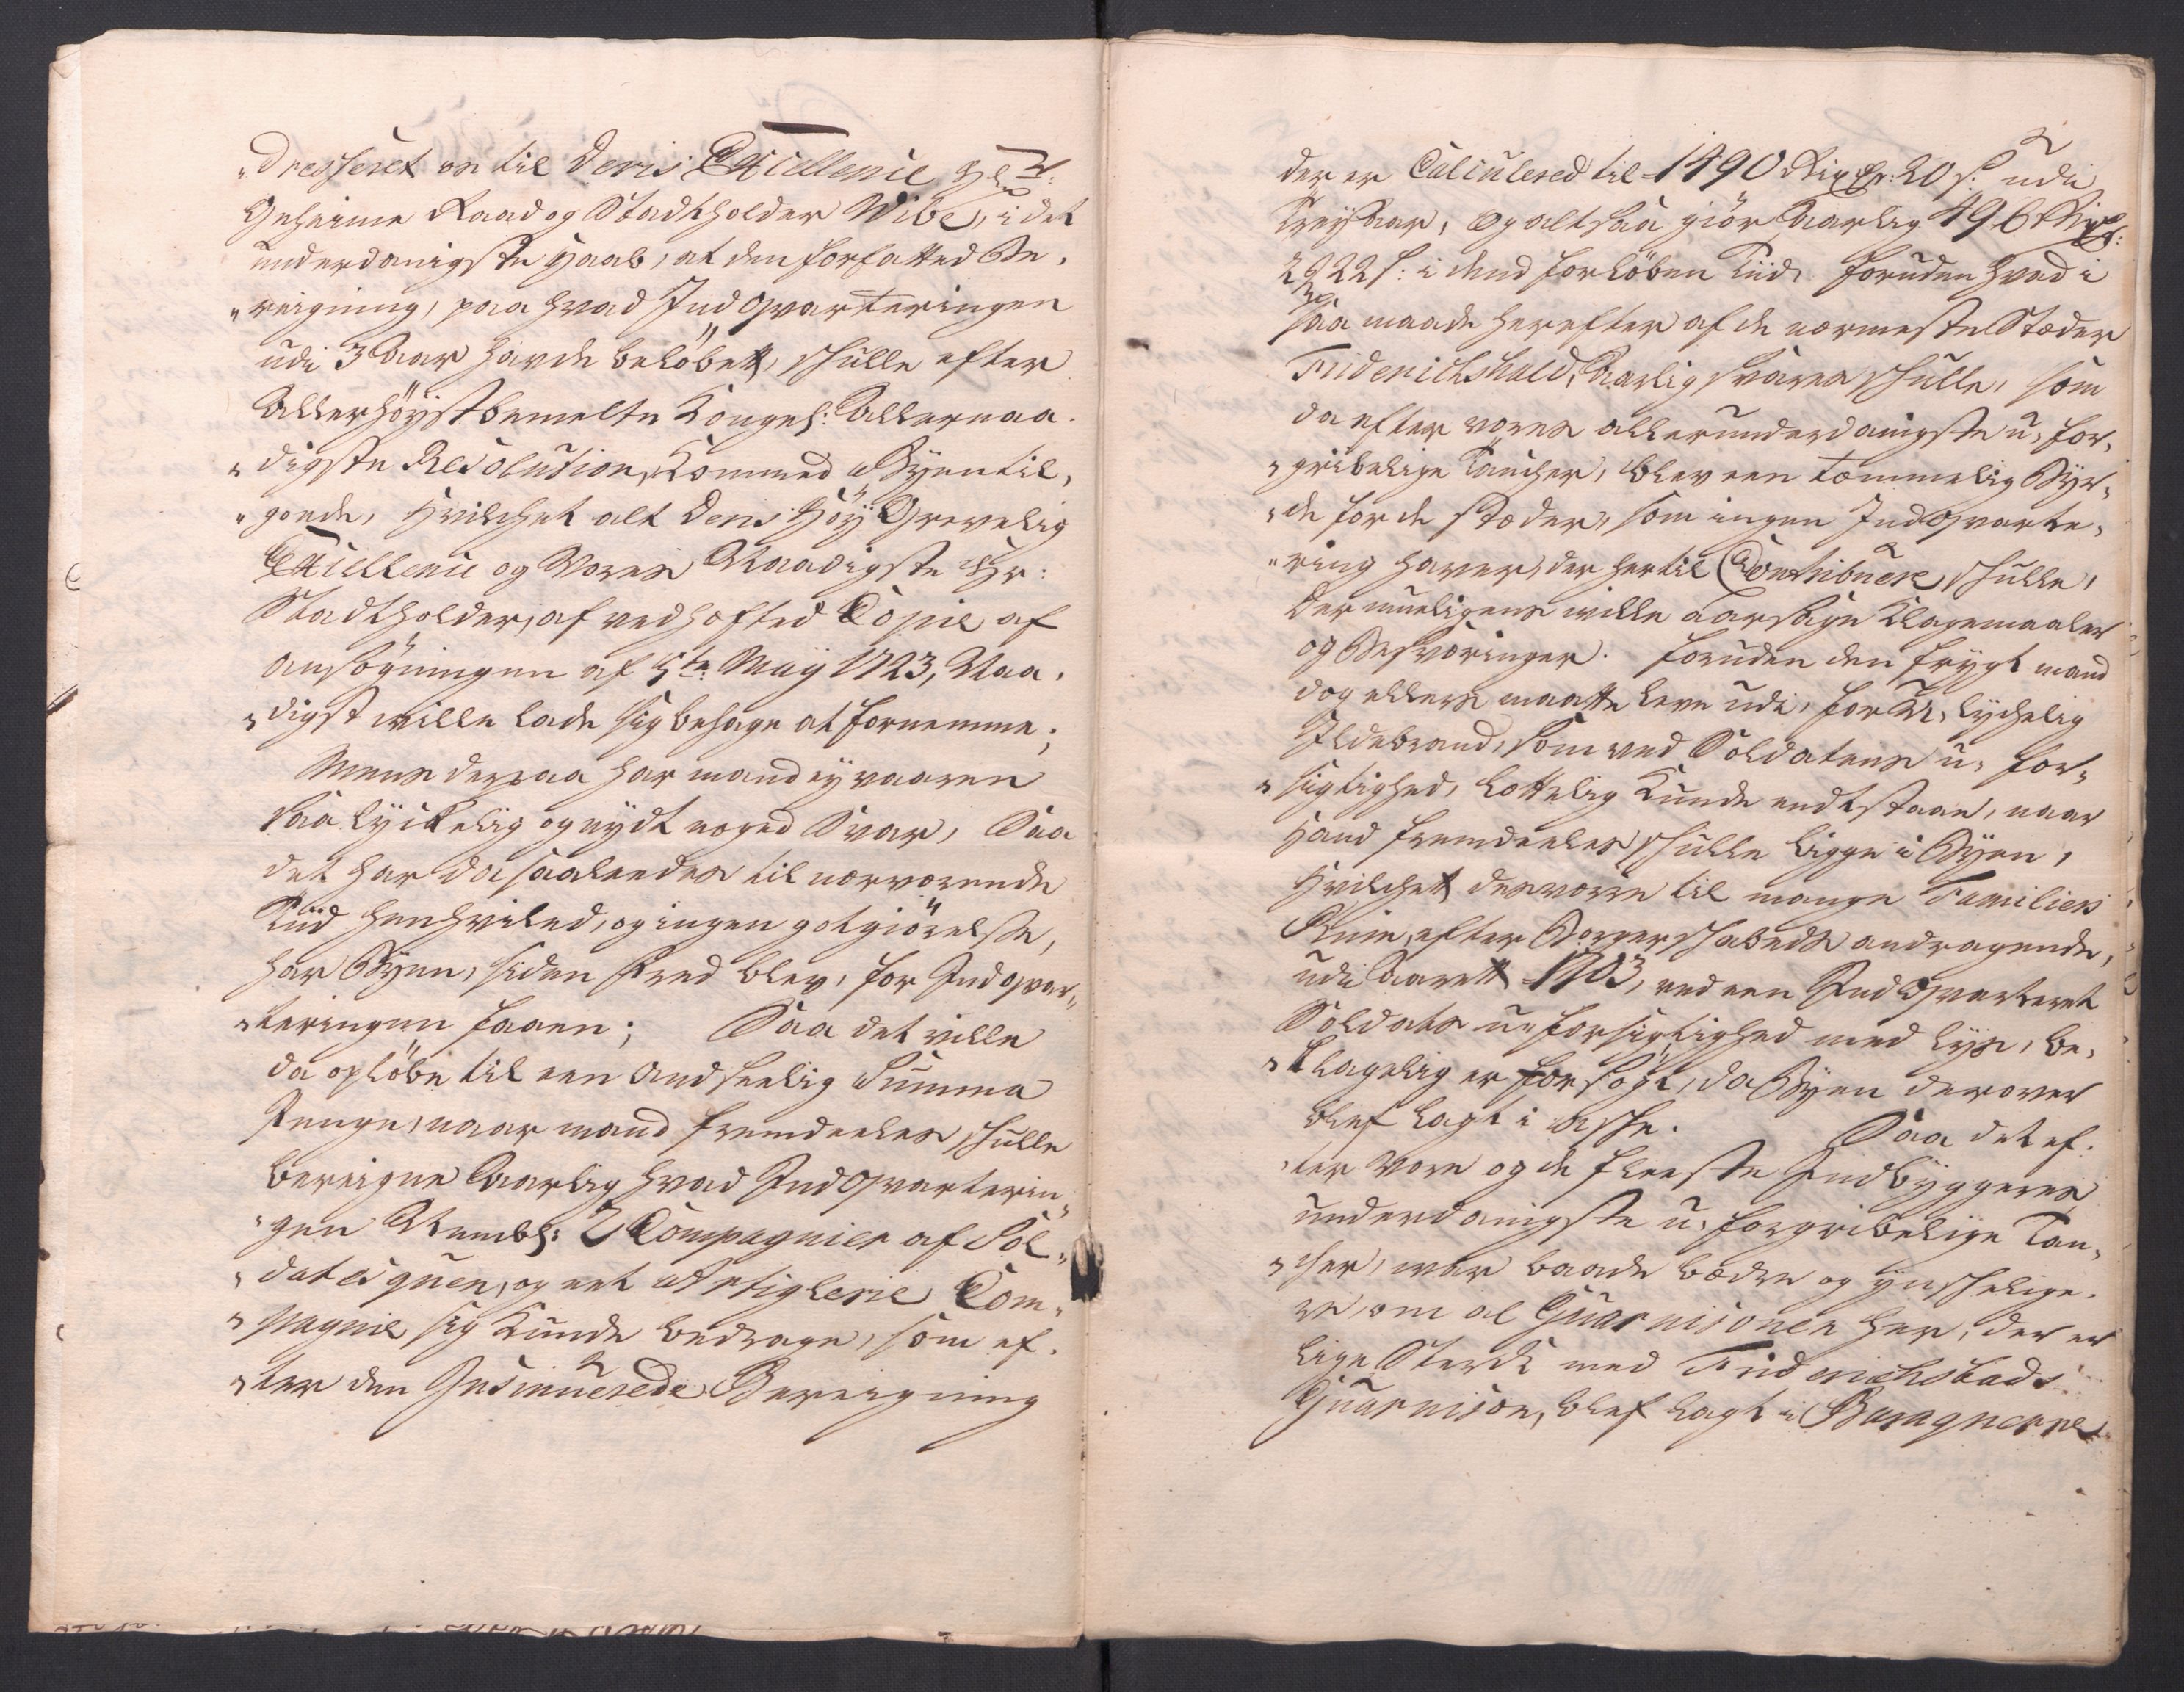 „Dresseret os til Deris Excellence Hr:
Geheime Raad og Stadtholder Wibe, i det
underdanigste Haab, at den forfatted Be„
„reigning, paa hvad Indqvarteringen
udi 3 Aar hafde beløbet, skulle efter
Allerhøystbemelte Kongel: Allernaa„
„digste Resolution, komme Byen til„
„gode, hvilchet alt Deris Høy Grevelig
Excellence og Vores Naadigste Hr:
Stadtholder, af vedhæfted Copie af
ansøgningen af 5te May 1723, Naa„
„digst wille lade sig behage at fornemme;
Mens derpaa har mand ey vaaren
saa lyckelig og nydt noged Svar, Saa
det har da saaledes til nærværende
Tiid henhviled, og ingen gotgiørelse,
har Byen, siden Fred blev, for Indqvar„
„teringen faaen; Saa det wille
da opløbe til een Andseelig Summa
Penge, naar mand fremdeeles skulle
bereigne Aarlig hvad Indqvarterin„
„gen Nembl: 2 Compagnier af Sol„
„datesquen, og eet Artiglerie Com„
„pagnie sig kunde bedrage, som ef„
„ter den Insinuerede Bereigning
der er Calculered til 1490 Rixdr: 20 s: udi
Trey Aar, og altsaa giør Aarlig 496 Rixdr:
2 22 s: i dend forløben Tiid, foruden hvad i
saa maade herefter af de nærmeste Stæder
Friderichshald, Aarlig svares skulle, som
da efter vores allerunderdanigste u„for„
„gribelige Tancher, blev een temmelig Byr„
„de for de stæder, som ingen Indqvarte„
„ring haver, der hertil Contribuere skulle,
der mueligens wille aarsage Klagemaaler
og Besværinger. foruden den frygt mand
dog ellers maatte leve udi, for U„lychelig
Ildebrand, som ved Soldatens u„for„
„sigtighed, lættelig kunde endtstaae, naar
Hand fremdeeles skulle ligge i Byen,
Hvilchet desværre til mange Familiers
Ruin, efter Borgerskabets andragende,
udi Aaret 1703, ved een Indqvarteret
Soldats u„forsigtighed med lys, be„
„klagelig er forsøgt, da Byen derover
blef lagt i Aske. Saa det ef„
„ter Vore og de fleeste Indbyggeres
underdanigste u„forgribelige Tan„
„cher, war baade bædre og ynskelige„
re, om al Guarnisonen her, der er
lige Sterck med Friderichstads
Guarnison, blef lagt i Baraquerne